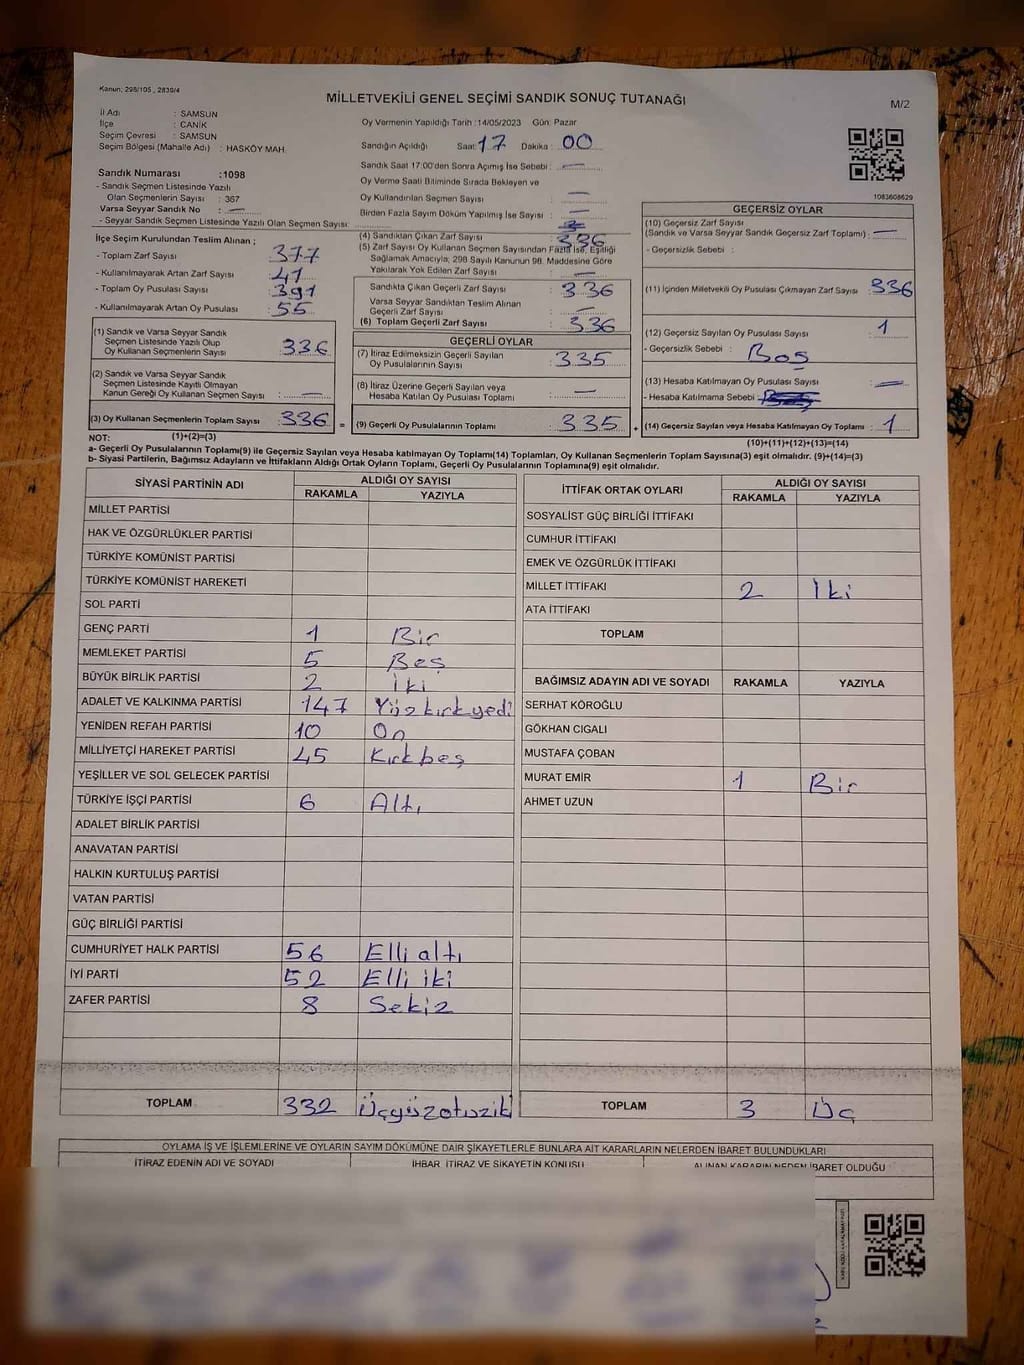 Kanun; 298/105 , 2839/4
MİLLETVEKİLİ GENEL SEÇİMİ SANDIK SONUÇ TUTANAĞI
M/2
İl Adı : SAMSUN
İlçe : CANİK
Seçim Çevresi : SAMSUN
Seçim Bölgesi (Mahalle Adı) : HASKÖY MAH.
Oy Vermenin Yapıldığı Tarih :14/05/2023 Gün: Pazar
Sandığın Açıldığı Saat: 17 Dakika : 00
Sandık Saat 17:00'den Sonra Açılmış İse Sebebi : —
Oy Verme Saati Bitiminde Sırada Bekleyen ve
Oy Kullandırılan Seçmen Sayısı : —
Birden Fazla Sayım Döküm Yapılmış İse Sayısı : —
Sandık Numarası :1098
- Sandık Seçmen Listesinde Yazılı
Olan Seçmenlerin Sayısı : 367
Varsa Seyyar Sandık No : —
- Seyyar Sandık Seçmen Listesinde Yazılı Olan Seçmen Sayısı:
İlçe Seçim Kurulundan Teslim Alınan ;
- Toplam Zarf Sayısı : 377
- Kullanılmayarak Artan Zarf Sayısı : 41
- Toplam Oy Pusulası Sayısı : 391
- Kullanılmayarak Artan Oy Pusulası : 55
(1) Sandık ve Varsa Seyyar Sandık
Seçmen Listesinde Yazılı Olup
Oy Kullanan Seçmenlerin Sayısı : 336
(2) Sandık ve Varsa Seyyar Sandık
Seçmen Listesinde Kayıtlı Olmayan
Kanun Gereği Oy Kullanan Seçmen Sayısı : —
(3) Oy Kullanan Seçmenlerin Toplam Sayısı : 336 =
(4) Sandıktan Çıkan Zarf Sayısı : 336
(5) Zarf Sayısı Oy Kullanan Seçmen Sayısından Fazla İse, Eşitliği
Sağlamak Amacıyla; 298 Sayılı Kanunun 98. Maddesine Göre
Yakılarak Yok Edilen Zarf Sayısı : —
Sandıkta Çıkan Geçerli Zarf Sayısı : 336
Varsa Seyyar Sandıktan Teslim Alınan
Geçerli Zarf Sayısı : —
(6) Toplam Geçerli Zarf Sayısı : 336
GEÇERLİ OYLAR
(7) İtiraz Edilmeksizin Geçerli Sayılan
Oy Pusulalarının Sayısı : 335
(8) İtiraz Üzerine Geçerli Sayılan veya
Hesaba Katılan Oy Pusulası Toplamı : —
(9) Geçerli Oy Pusulalarının Toplamı : 335 +
1083608629
GEÇERSİZ OYLAR
(10) Geçersiz Zarf Sayısı
(Sandık ve Varsa Seyyar Sandık Geçersiz Zarf Toplamı) : —
- Geçersizlik Sebebi :
(11) İçinden Milletvekili Oy Pusulası Çıkmayan Zarf Sayısı : 336
(12) Geçersiz Sayılan Oy Pusulası Sayısı : 1
- Geçersizlik Sebebi : Boş
(13) Hesaba Katılmayan Oy Pusulası Sayısı : —
- Hesaba Katılmama Sebebi :
(14) Geçersiz Sayılan veya Hesaba Katılmayan Oy Toplamı : 1
NOT: (1)+(2)=(3)
(10)+(11)+(12)+(13)=(14)
a- Geçerli Oy Pusulalarının Toplamı(9) ile Geçersiz Sayılan veya Hesaba katılmayan Oy Toplamı(14) Toplamları, Oy Kullanan Seçmenlerin Toplam Sayısına(3) eşit olmalıdır. (9)+(14)=(3)
b- Siyasi Partilerin, Bağımsız Adayların ve İttifakların Aldığı Ortak Oyların Toplamı, Geçerli Oy Pusulalarının Toplamına(9) eşit olmalıdır.
SİYASİ PARTİNİN ADI
ALDIĞI OY SAYISI
RAKAMLA YAZIYLA
MİLLET PARTİSİ
HAK VE ÖZGÜRLÜKLER PARTİSİ
TÜRKİYE KOMÜNİST PARTİSİ
TÜRKİYE KOMÜNİST HAREKETİ
SOL PARTİ
GENÇ PARTİ 1 Bir
MEMLEKET PARTİSİ 5 Beş
BÜYÜK BİRLİK PARTİSİ 2 İki
ADALET VE KALKINMA PARTİSİ 147 Yüzkırkyedi
YENİDEN REFAH PARTİSİ 10 On
MİLLİYETÇİ HAREKET PARTİSİ 45 Kırkbeş
YEŞİLLER VE SOL GELECEK PARTİSİ
TÜRKİYE İŞÇİ PARTİSİ 6 Altı
ADALET BİRLİK PARTİSİ
ANAVATAN PARTİSİ
HALKIN KURTULUŞ PARTİSİ
VATAN PARTİSİ
GÜÇ BİRLİĞİ PARTİSİ
CUMHURİYET HALK PARTİSİ 56 Elli altı
İYİ PARTİ 52 Elli iki
ZAFER PARTİSİ 8 Sekiz
TOPLAM 332 Üçyüzotuziki
İTTİFAK ORTAK OYLARI
ALDIĞI OY SAYISI
RAKAMLA YAZIYLA
SOSYALİST GÜÇ BİRLİĞİ İTTİFAKI
CUMHUR İTTİFAKI
EMEK VE ÖZGÜRLÜK İTTİFAKI
MİLLET İTTİFAKI 2 İki
ATA İTTİFAKI
TOPLAM
BAĞIMSIZ ADAYIN ADI VE SOYADI RAKAMLA YAZIYLA
SERHAT KÖROĞLU
GÖKHAN CIGALI
MUSTAFA ÇOBAN
MURAT EMİR 1 Bir
AHMET UZUN
TOPLAM 3 Üç
OYLAMA İŞ VE İŞLEMLERİNE VE OYLARIN SAYIM DÖKÜMÜNE DAİR ŞİKAYETLERLE BUNLARA AİT KARARLARIN NELERDEN İBARET BULUNDUKLARI
İTİRAZ EDENİN ADI VE SOYADI
İHBAR, İTİRAZ VE ŞİKAYETİN KONUSU
ALINAN KARARIN NEDEN İBARET OLDUĞU